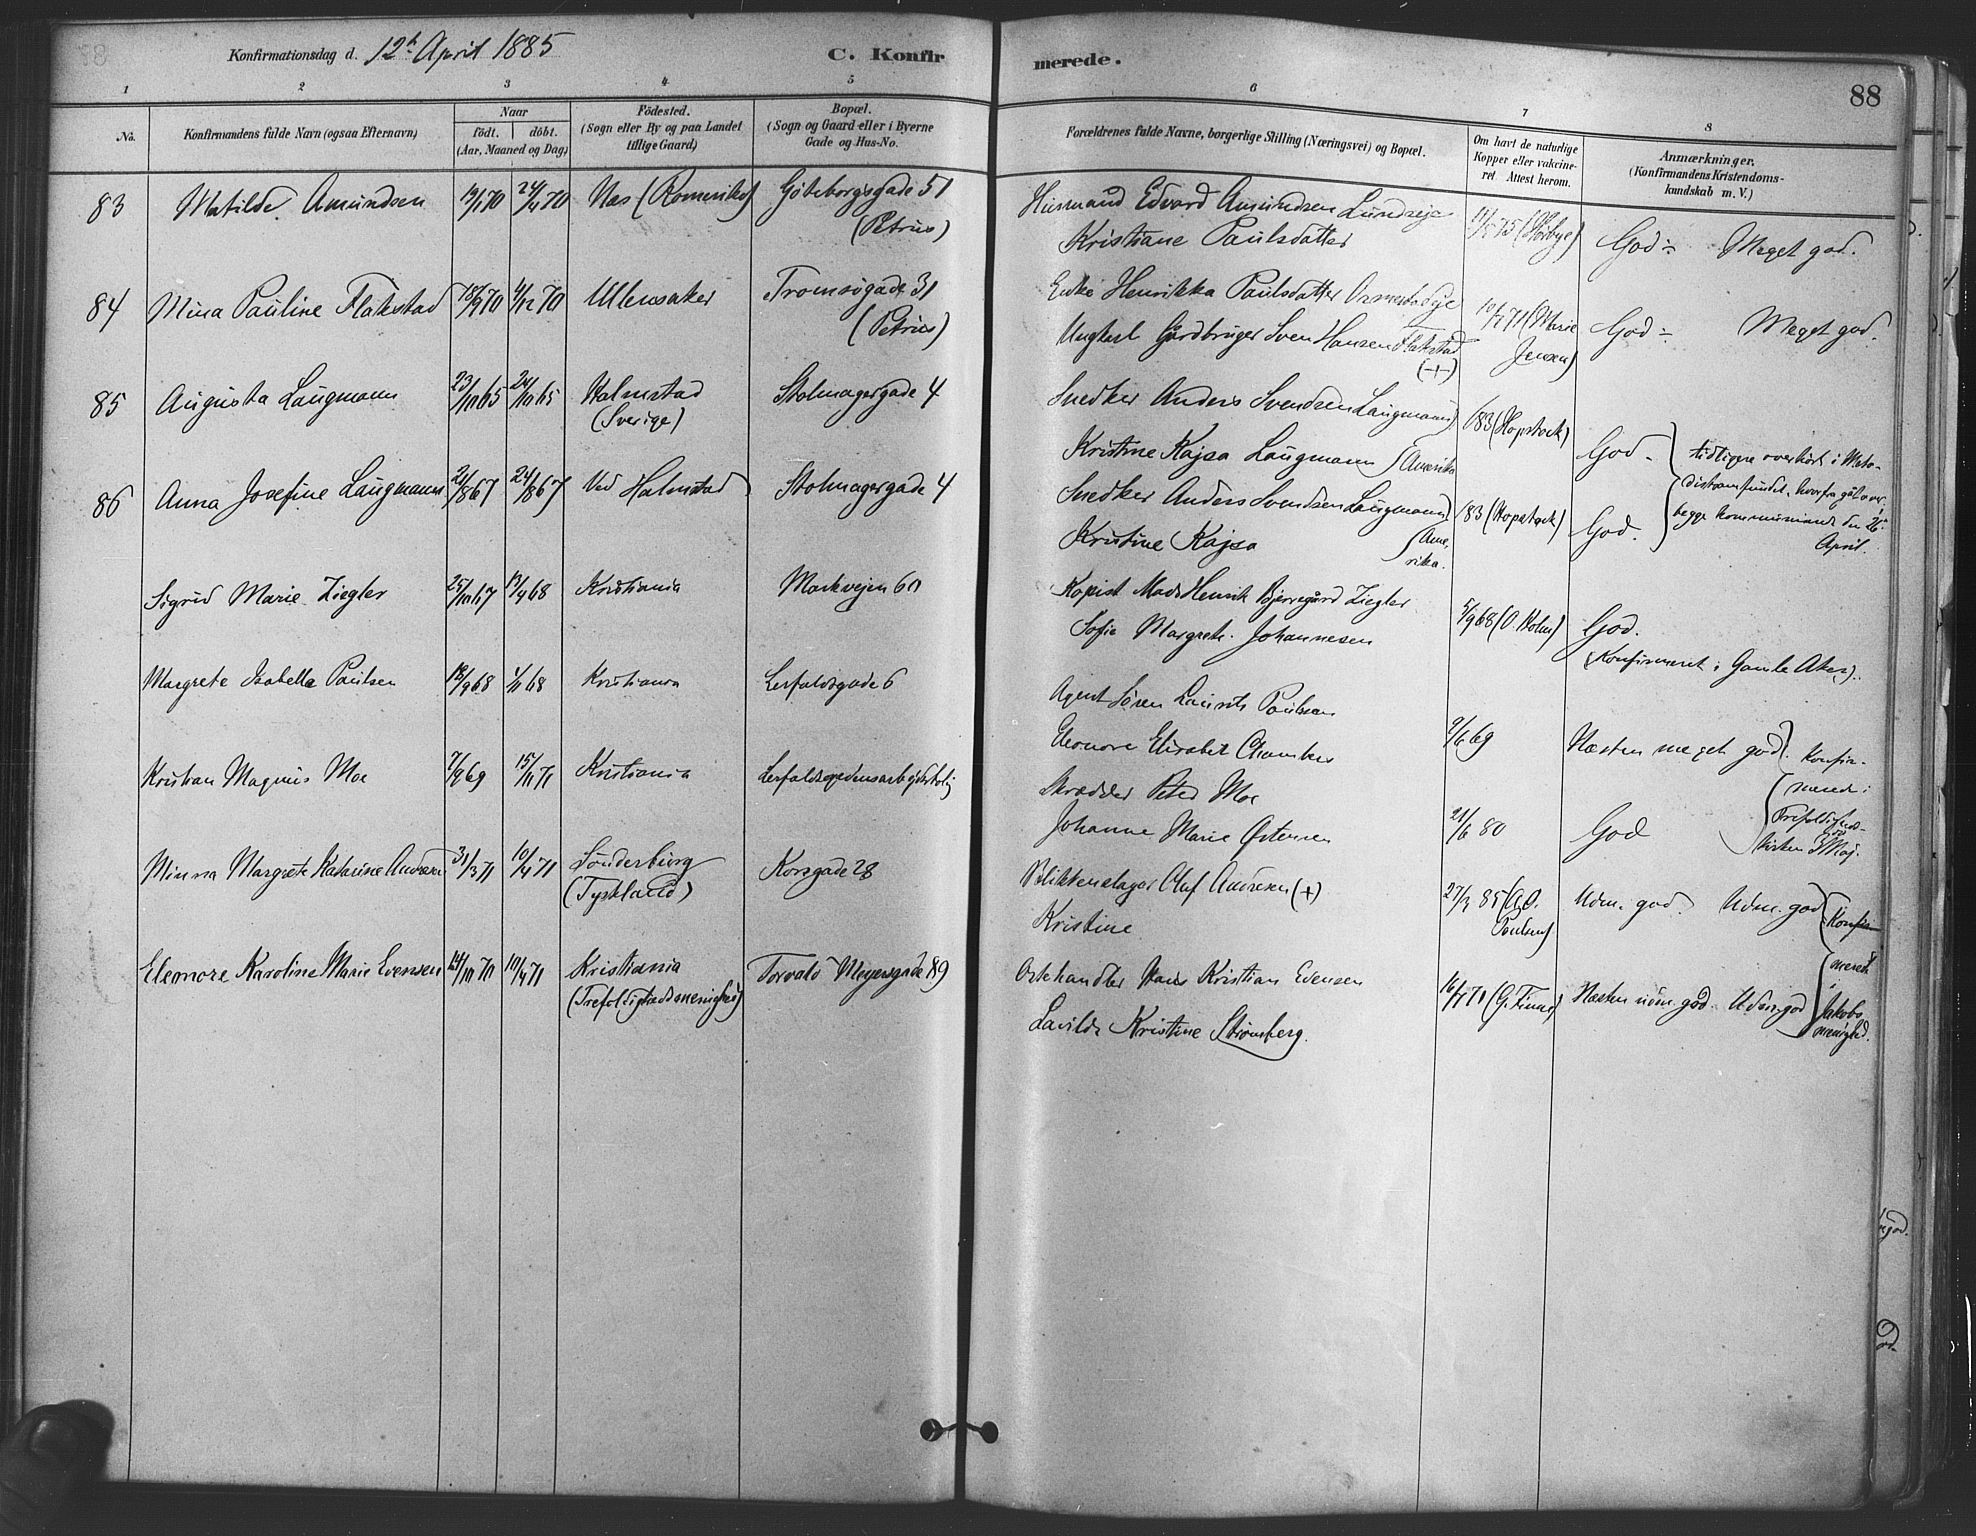 Konfirmationsdag d. 12te April 1885 C. Konfirmerede. 88
1 2 3 4 5 6 7 8
No. Konfirmandens fulde Navn (ogsaa Efternavn) Naar födt. döbt. (Aar, Maaned og Dag) Födested. (Sogn eller By og paa Landet tillige Gaard) Bopæl. (Sogn og Gaard eller i Byerne Gade og Hus-No. Forældrenes fulde Navne, borgerlige Stilling (Næringsvei) og Bopæl. Om havt de naturlige Kopper eller vakcineret. Attest herom. Anmærkninger. (Konfirmandens Kristendomskundskab m. V.)
83 Matilde Amundsen 19/1 70 24/4 70 Næs (Romerike) Göteborgsgade 51 Husmand Edvard Amundsen Lundseje
(Petrus) Kristiane Paulsdatter 75 God ÷ Meget god.
84 Mina Pauline Flakstad 18/9 70 4/12 70 Ullensaker Tromsögade 31 Enke Henrikka Paulsdatter
(Petrus) Ungkarl Gårdbruger Sven Hansen Flakstad 71 (Marie God ÷ Meget god.
(+) Jensen)
85 Augusta Laugmann 23/10 65 24/10 65 Halmstad Stolmagergade 4 Snedker Anders Svendsen Laugmann 83 (Hopstock)
(Sverige) Kristine Kajsa Laugmann (Amerika God - tidligere overhört i
86 Anna Josefine Laugmann 21/8 67 24/8 67 Ved Halmstad Stolmagergade 4 Snedker Anders Svendsen Laugmann 83 (Hopstock) God.
Kristine Kajsa (Amerika. begge den 26de April.
Sigrid Marie Ziegler 25/10 67 13/4 68 Kristiania Markvejen 60 Kopist Mads Henrik Bjerregård Ziegler
Sofie Margrete Johannesen 5/9 68 (O. Holm) God.
(Konfirmeret i Gamle Aker).
Margrete Isabella Paulsen 18/9 68 1/11 68 Kristiania Lerfaldsgade 6 Agent Sören Laurits Paulsen
Eleonore Elisabet Chambers 9/6 69 Næsten meget god. Konfir-
Kristian Magnus Moe 7/9 69 15/11 71 Kristiania Skrædder Peter Moe merede i
Johanne Marie Østensen 21/6 80 God 3 Maj.
Minna Margrete Katarine Andresen 31/3 71 10/4 71 Sönderburg Korsgade 28 Blikkenslager Olaf Andresen (+)
(Tyskland) Kristine 27/3 85 Udm. god. Udm. god Konfir-
Paulsen)
Eleonore Karoline Marie Evensen 14/10 70 10/4 71 Kristiania Torvald Meyersgade 89 Ostehandler Hans Kristian Evensen merede i
(Trefoldighedsmenighed) Lavilda Kristine Strömberg. 71 Næsten udm. god. Udm god Jakobs
menighed.